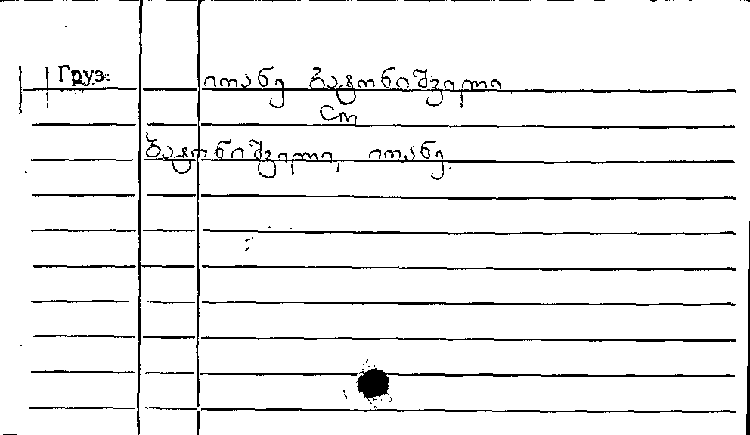 Груз.
იოანე ბატონიშვილი
См
ბატონიშვილი, იოანე.